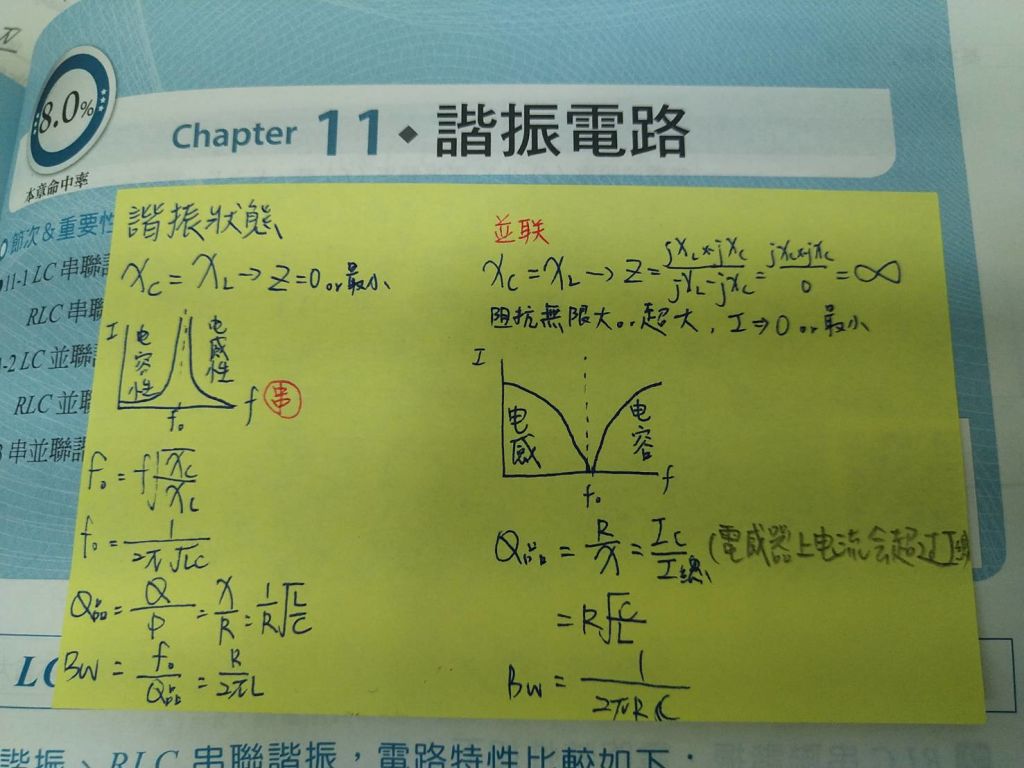 8.0%
本章命中率
Chapter 11 · 諧振電路
節次&重要性
11-1 LC 串聯
RLC 串聯
-2 LC 並聯
RLC 並聯
串並聯
諧振狀態
X_C = X_L → Z = 0 or 最小
I
电容性
电感性
f₀
f
串
f₀ = f√(X_C/X_L)
f₀ = 1/(2π√LC)
Q品 = Q/P = X/R = 1/R √(L/C)
BW = f₀/Q品 = R/2πL
並联
X_C = X_L → Z = (jX_L × jX_C)/(jX_L - jX_C) = (jX_L × jX_C)/0 = ∞
阻抗無限大 or 超大, I ⇒ 0 or 最小
I
电感
电容
f₀
f
Q品 = R/X = I_C/I總 (電感器上电流会超过I總
= R√(C/L)
BW = 1/(2πRC)
LC
諧振、RLC 串聯諧振,電路特性比較如下: